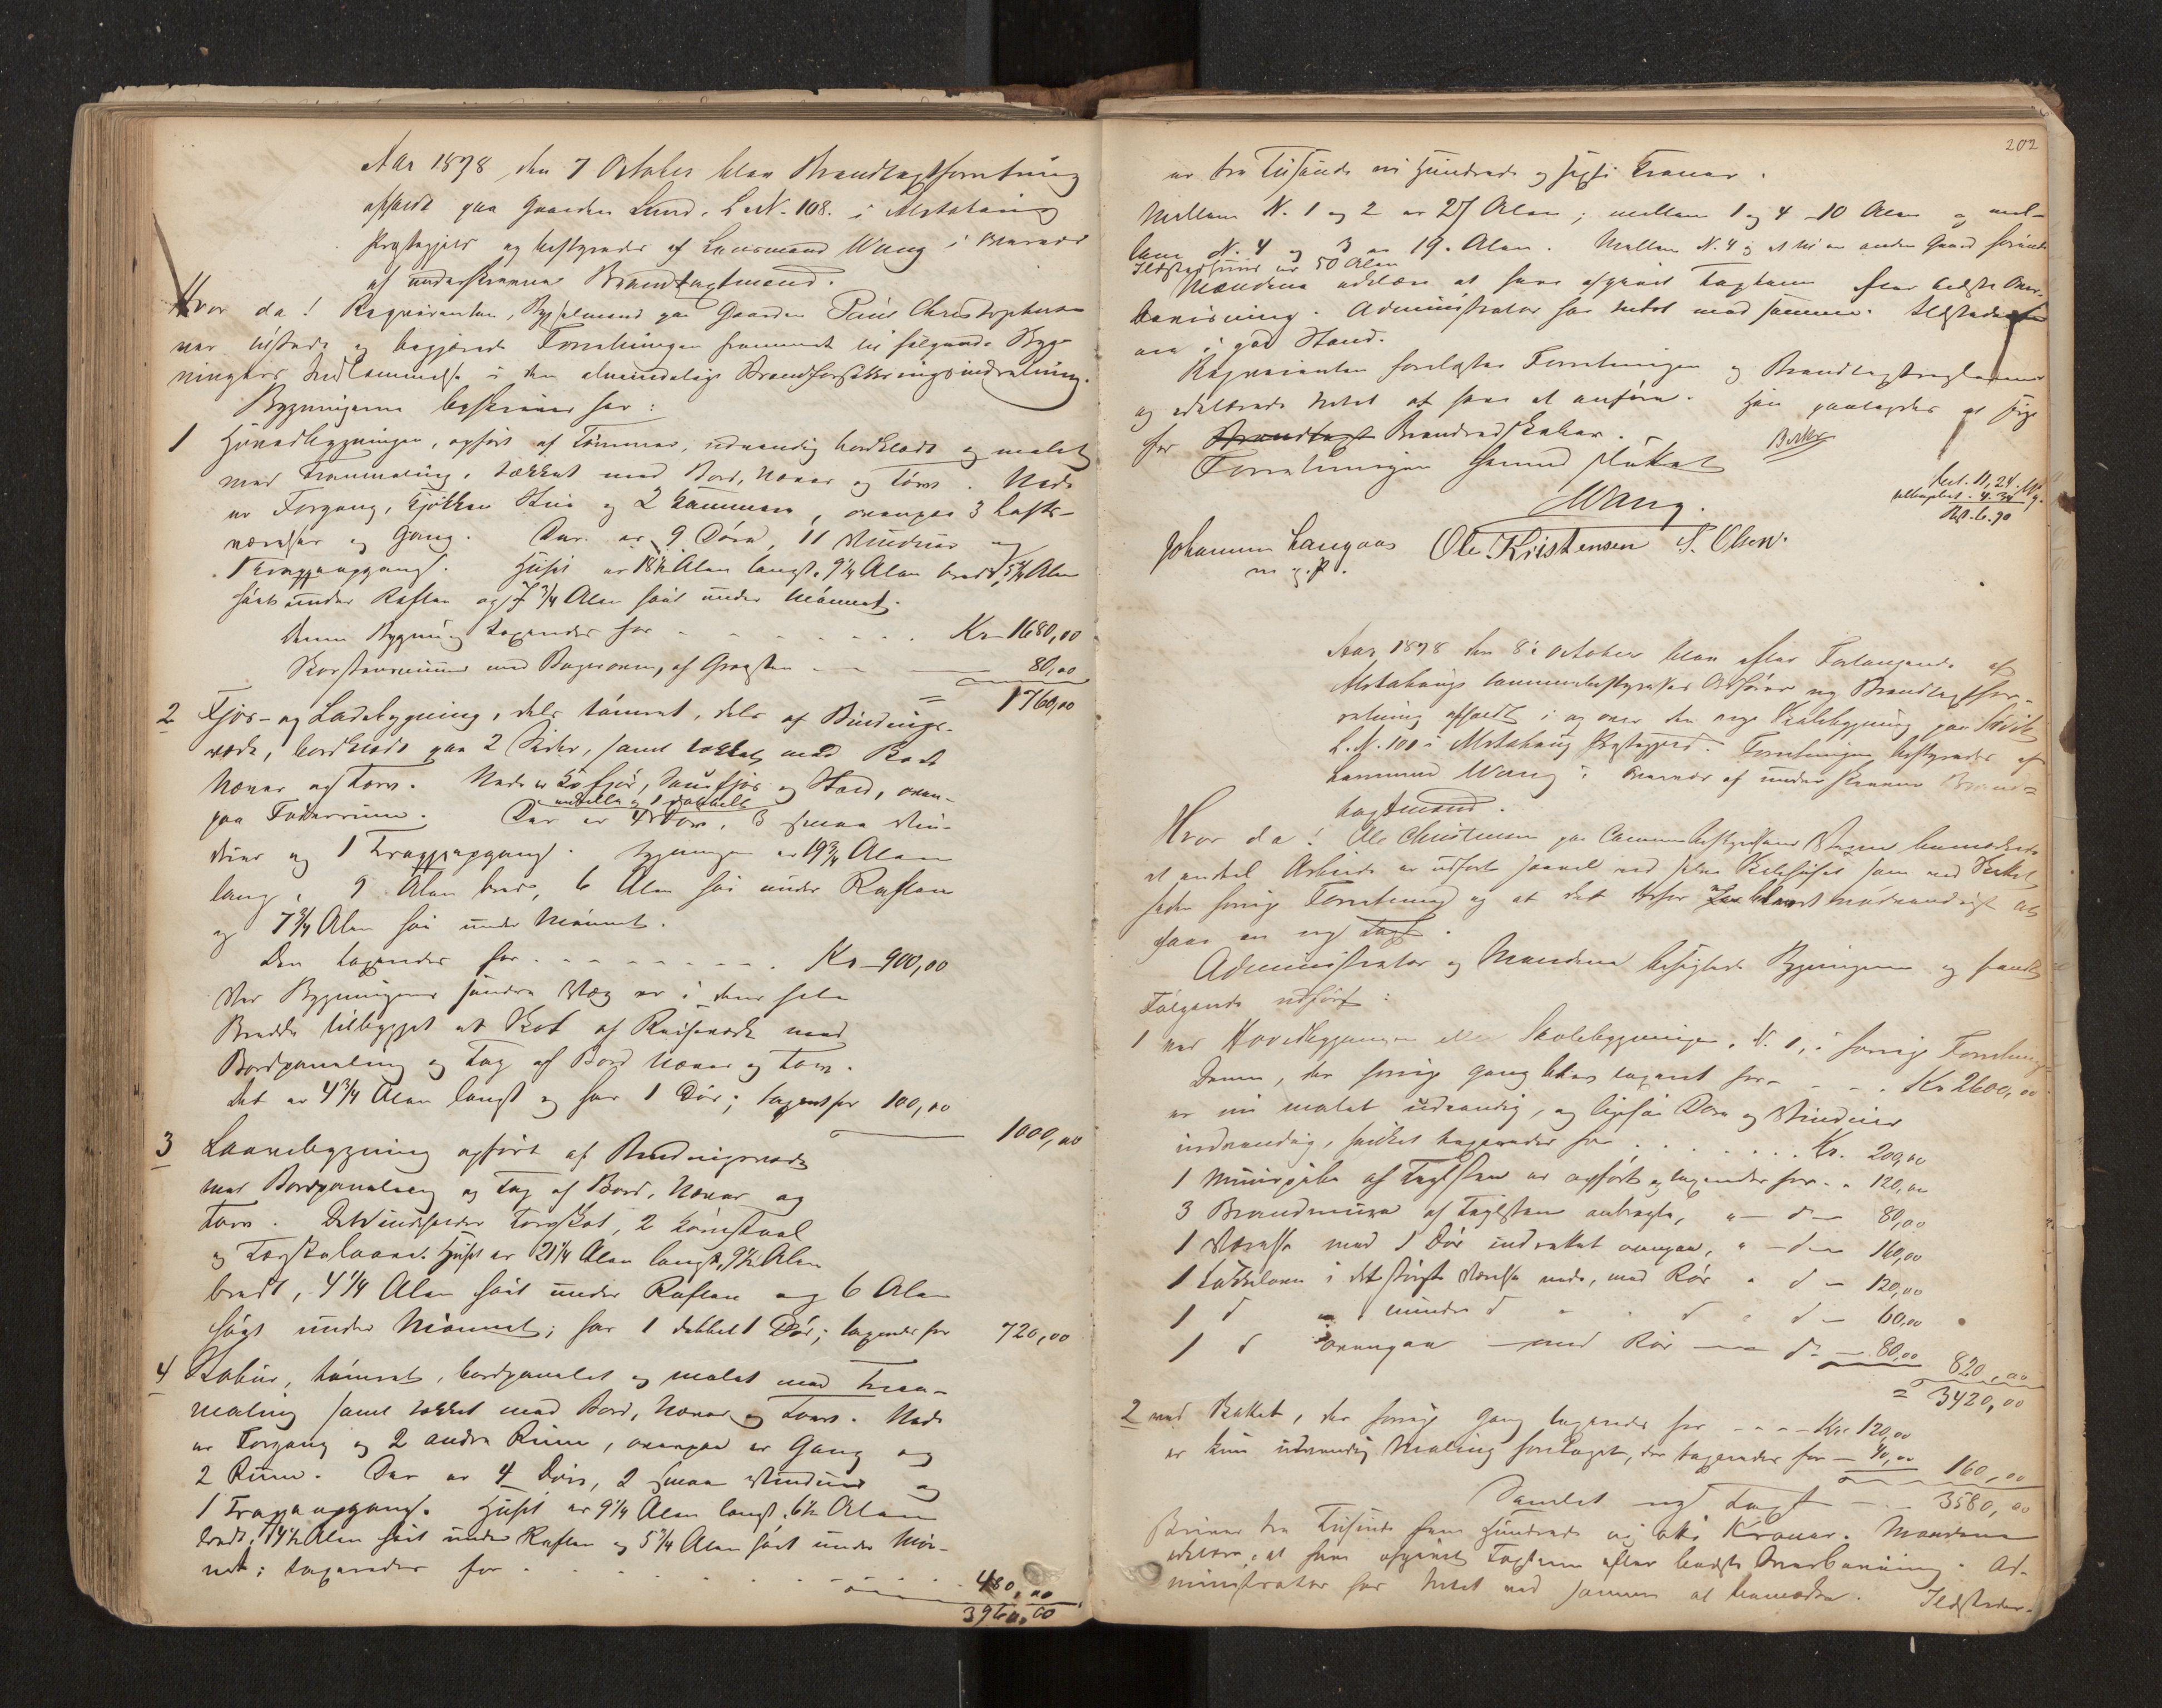 Aar 1878, den 7 October blev Brandtaxtforretning
afholdt paa Gaarden Lund, L.N. 108. i Mo
Præstegjeld og bestyredes af Lensmand Wang i Overvær
af underskrevne Brandtaxtmænd.
Hvor da! Rekvirenten, Brugeren paa Gaarden Peder Christophersen
var tilstede og begjærede Forretningen fremmet til følgende Byg-
ningers Indlemmelse i den almindelige Brandforsikringsindretning.
Bygningerne beskrives saa:
1 Hovedbygningen, opført af Tømmer, udvendig bordklædt og malet
med Tranmaling, tækket med Bord, Næver og Torv. Nede
er Forgang, Kjøkken Stue og 2 Kammere, ovenpaa 3 Lofts-
værelser og Gang. Der er 9 Døre, 11 Vinduer og
1 Trappeopgang. Huset er 18½ Alen langt, 9¼ Alen bredt, 5¾ Alen
høit under Raften og 7¾ Alen høit under Mønnet.
Denne Bygning taxeredes for - - - - - - - Kr. 1680,00
Skorstensmuur med Bagerovn, af Graasten - - - 80,00
= 1760,00
2 Fjøs- og Ladebygning, dels tømret, dels af Bindings-
værk, bordklædt paa 2 Sider, samt tækket med Bord
Næver og Torv. Nede er Kofjøs, Sauefjøs og Stald, oven-
enkelte og 1 dobbelt
paa Foderrum. Der er 4 Døre, 3 smaa Vin-
duer og 1 Trappeopgang. Bygningen er 19¾ Alen
lang, 9 Alen bred, 6 Alen høi under Raften
og 7¾ Alen høi under Mønnet.
Den taxeredes for - - - - - - - - Kr. 900,00
Ved Bygningens søndre Væg er i dens hele
Bredde tilbygget et Skot af Reisværk med
Bordpaneling og Tag af Bord Næver og Torv.
Det er 4¾ Alen langt og har 1 Dør; taxeret for 100,00
1000,00
3 Laavebygning opført af Bindingsværk
med Bordpaneling og Tag af Bord, Næver og
Torv. Det indeholder Torvskot, 2 Kornstaal
og Tærskelaave. Huset er 21¼ Alen langt, 9½ Alen
bredt, 4¼ Alen høit under Raften og 6 Alen
høit under Mønnet; har 1 dobbelt Dør; taxeredes for 720,00
4 Stabur, tømret, bordpanelet og malet med Tran-
maling samt tækket med Bord, Næver og Torv. Nede
er Forgang og 2 andre Rum, ovenpaa er Gang og
2 Rum. Der er 4 Døre, 2 smaa Vinduer og
1 Trappeopgang. Huset er 9¼ Alen langt, 6½ Alen
bredt, 4½ Alen høit under Raften og 5¾ Alen høit under Møn-
net; taxeredes for - - - - - - 480,00
3960,00
202
er tre Tusinde ni Hundrede og sexti Kroner.
Mellem N. 1 og 2 er 27 Alen; mellem 1 og 4 10 Alen og mel-
lem N. 4 og 3 er 19. Alen. Mellem N. 4 og et til en anden Gaard hørende
Ildstedshuus er 50 Alen
Mændene erklære at have afgivet Taxten efter bedste Over-
bevisning. Administrator har Intet mod samme. Ildstederne
ere i god Stand.
Rekvirenten forelagdes Forretningen og Brandtaxtreglerne
og erklærede Intet at have at anføre. Han paalagdes at sørge
for Brandtaxt Brandredskaber.
Forretningen dermed sluttet
Wang.
Johannes Langaas Ole Kristensen S. Olsen.
m. p. P.
Aar 1878 den 8de October blev efter Forlangende af
Communebestyrelses Ordfører ny Brandtaxtfor-
retning afholdt i og over den nye Skolebygning paa
L.N. 100 i Præstegjeld. Forretningen bestyredes af
Lensmand Wang i Overvær af underskrevne Brand-
taxtmænd.
Hvor da! Ole Christensen paa Communebestyrelsens Vegne bemærkede
at endel Arbeide er udført saavel ved selve Skolehuset som ved Skolen
siden forrige Forretning og at det derfor nødvendigt at
faae en ny Taxt.
Administrator og Mændene besigtede Bygningerne og fandt
Følgende udført:
1 ved Hovedbygningen eller Skolebygningen, N. 1, i forrige Forretning
Denne, der forrige Gang blev taxeret for - - - Kr 2600,00
er nu malet udvendig, og ligesaa Døre og Vinduer
indvendig, hvilket taxeredes for . . . . . . Kr. 200,00
1 Muurpibe af Taglsten er opført og taxeredes for . . 120,00
3 Brandmure af Taglsten anbragte, " - d - 80,00
1 Værelse med 1 Dør indrettet ovenpaa, " - d - 160,00
1 Kakkelovn i det største Værelse nede, med Rør " d - 120,00
1 d " mindre d " " d " d - 60,00
1 d ovenpaa - med Rør - d - 80,00
820,00
= 3420,00
2 ved , der forrige Gang taxeredes for - - - Kr. 120,00
er kun udvendig Maling foretaget, der taxeredes for - 40,00
160,00
Samlet ny Taxt - - 3580,00
Skriver tre Tusinde fem Hundrede og otti Kroner. Mændene
erklære, at have afgivet Taxten efter bedste Overbevisning. Ad-
ministrator har Intet ved samme at bemærke. Ildstederne